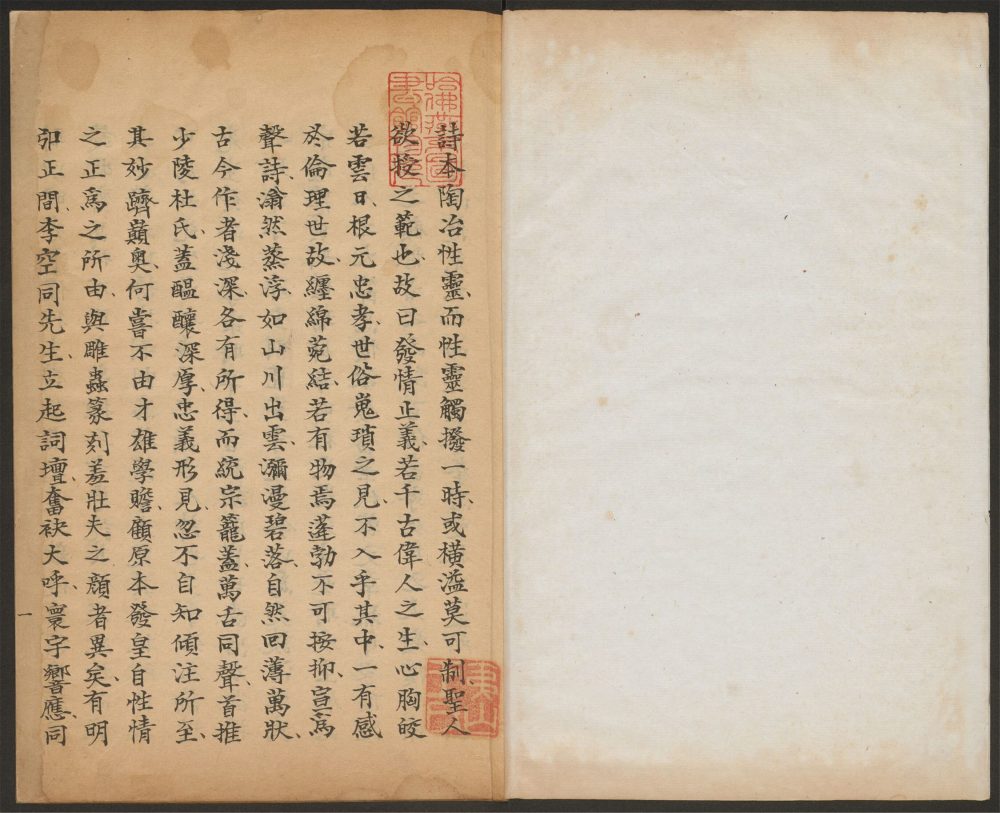 詩本陶冶性靈、而性靈觸撥一時、或橫溢莫可制、聖人
欲授之範也、故曰發情止義、若千古偉人之生、心胸皎
若雲日、根元忠孝、世俗嵬瑣之見、不入乎其中、一有感
於倫理世故、纏綿菀結、若有物焉、蓬勃不可按抑、宣焉
聲詩、瀹然蒸浮、如山川出雲、瀰漫碧落、自然回薄萬狀、
古今作者淺深各有所得、而統宗籠蓋、萬舌同聲、首推
少陵杜氏、蓋醞釀深厚、忠義形見、忽不自知傾注所至、
其妙躋巔奧、何嘗不由才雄學贍、顧原本發皇自性情
之正爲之所由、與雕蟲篆刻羞壯夫之顏者異矣、有明
弘正間、李空同先生、立起詞壇、奮袂大呼、寰宇響應、同
一
哈佛